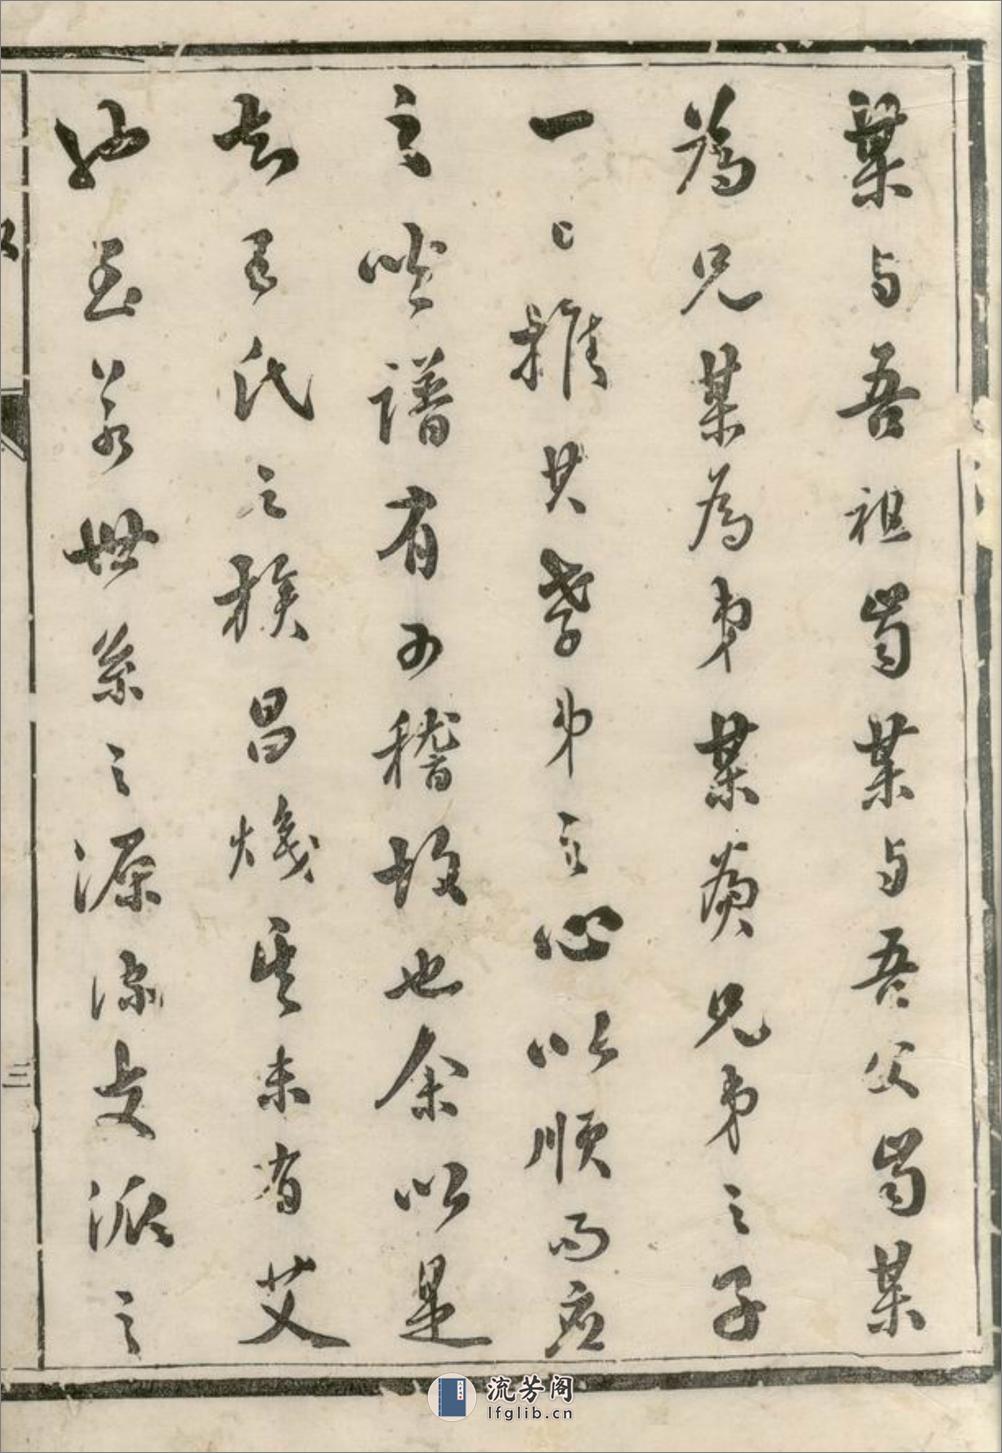 某与吾祖為某与吾父為某
為兄某為弟某为兄弟之子
一〻推其孝弟之心以順而應
之此譜有可稽故也余以是
知王氏之族昌熾其未有艾
也至若世系之源流支派之
三
流芳阁
lfglib.cn